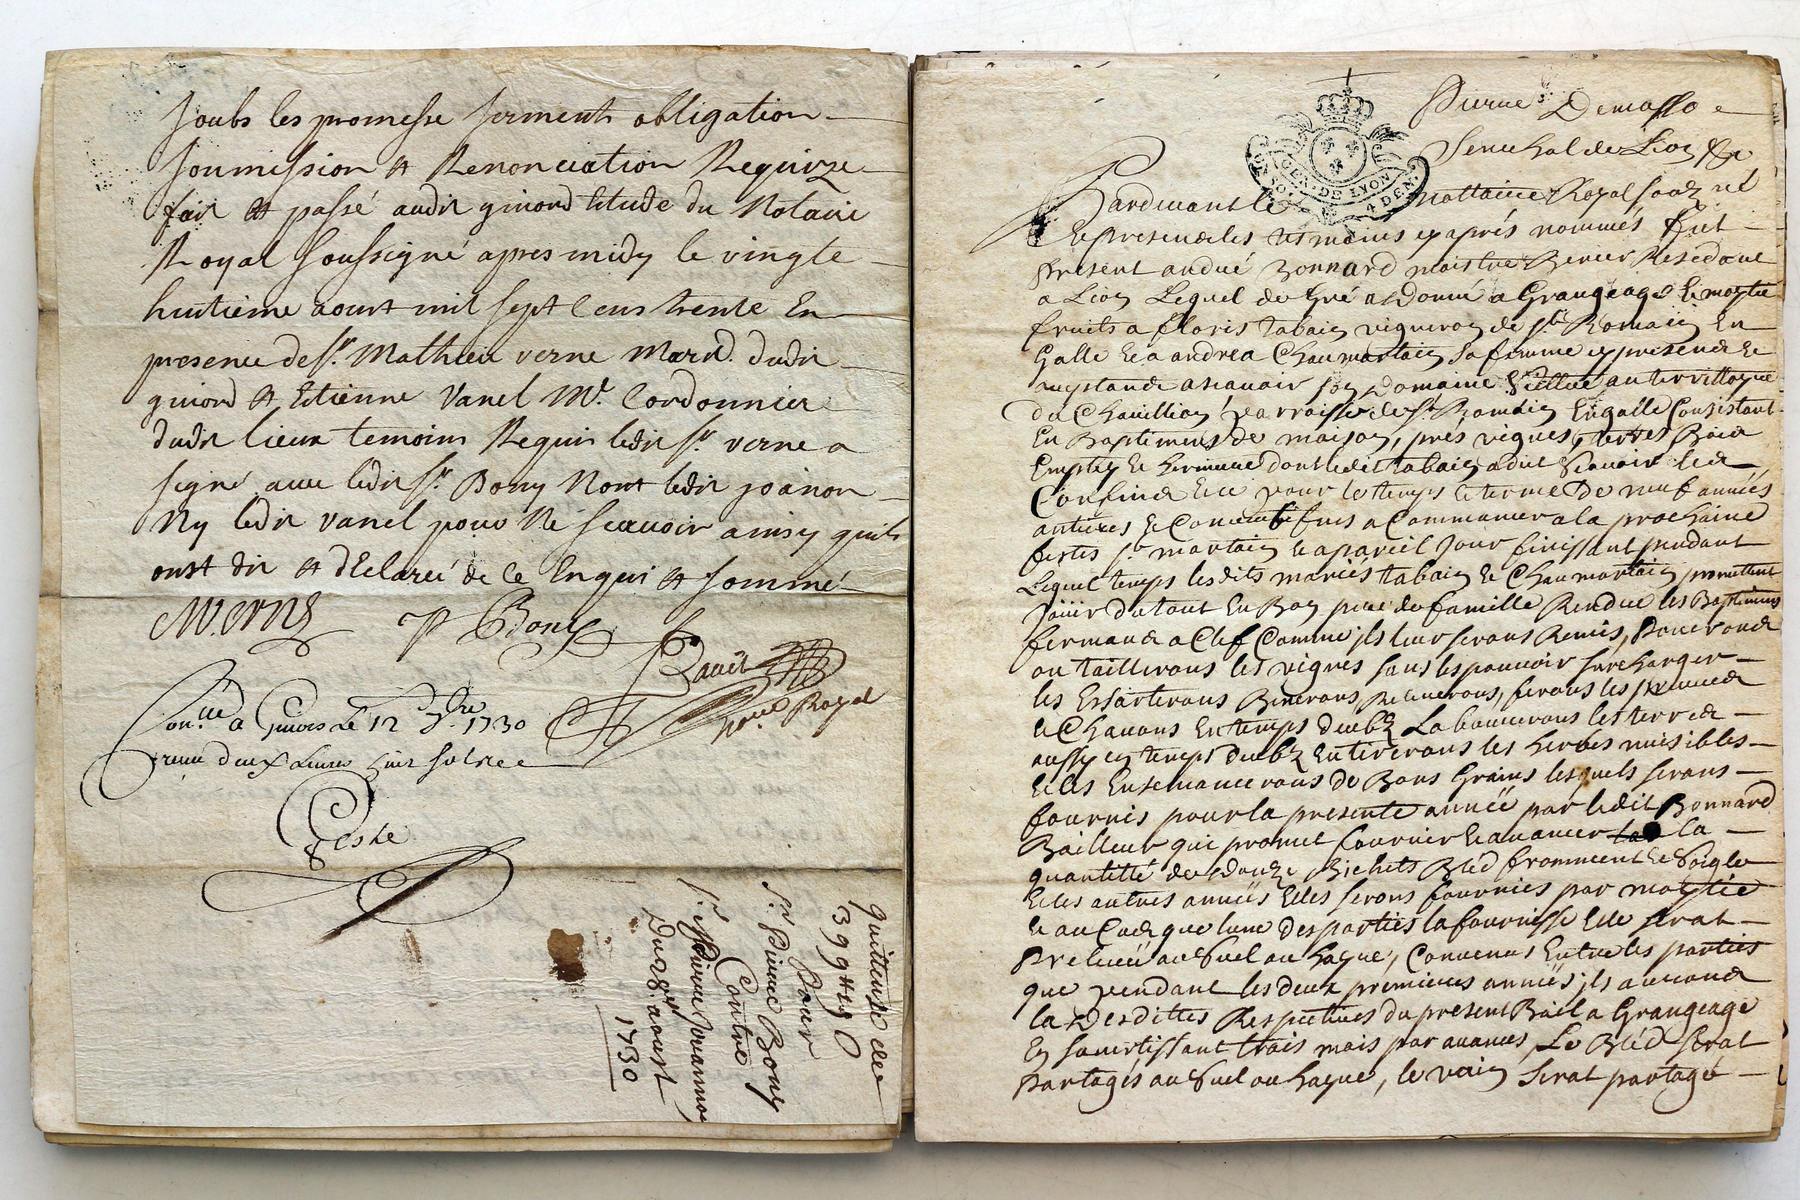 soubs les promesse serments obligation
soumission & Renonciation Requize
fait & passé audit givord étude du Notaire
Royal soussigné apres midy le vingte
huitieme aoust mil sept Cens trente En
presence de sr. Mathieu verne March. dudit
givord & Etienne Vanel Me. Cordonnier
dudit lieux temoins Requis ledit sr. verne a
signé avec ledit sr. Bony Nont ledit joanon
Ny ledit vanel pour Ne sçavoir ainsy quils
ont dit & dEclareé de Ce Enquis & sommé
M. verne P Bony
Nore. Royal
Con.lle a Givors Le 12 7.bre 1730
receu deux Livres huit sols
Teste
quittence de
399tt 19 0
Pour
sr. Pierre Bony
Contre
sr. Pierre Jouannon
Du 28e. aoust
1730
Pierre Demasso
Senechal de Lion &c
GEN. DE LYON
4 DEN.
Pardevant le nottaire Royal souzné
En presence des tesmoins cy après nommés fut
present andré Bonnard maistre Resedant
a Lion Lequel de Gré a donné a Grangeage a moytié
fruits a floris tabain vigneron de st Romain En
Galle & a andrea Chaumartain sa femme cy presente &
acceptante asçavoir son Domaine Scittué au territtoyre
du Chatillion parroisse de st Romain En galle Consistant
En Baptiments de maison, prés vignes, terres Bois
dont ledit tabain a dit sçavoir les
Confins & ce pour le temps & terme De neuf années
antieres & Consecutives a Commancer a la prochaine
festes st martain & a pareil Jour finissant pendant
Lequel temps lesdits mariés tabain & Chaumartain promettent
Joüir du tout En Bon pere de famille Rendre les Baptiments
fermants a Clef Comme ils leur serons Remis,
ou taillerons les vignes sans les pouvoir surcharger
les Essarterons Binerons, ferons les
En temps deubz Labourerons les terres
aussy en temps deubz En tirerons les herbes nuisibles
& les Ensemancerons de Bons Grains lesquels serons
fournis pour la presente année par ledit Bonnard
Bailleur qui promet fournir & avancer la
quantitté de douze Bichets Bled fromment & soigle
& les autres années Elles serons fournies par moytié
& au Cas que lune des parties la fournisse Elle serat
Prelevée au Suel ou hayrie, Convenus Entre les parties
que pendant les deux premieres années ils aurons
la Desdittes Respective du present Bail a Grangeage
En savertissant trois mois par avances, Le Bléd serat
partagés au Suel ou hayrie, le vin serat partagé